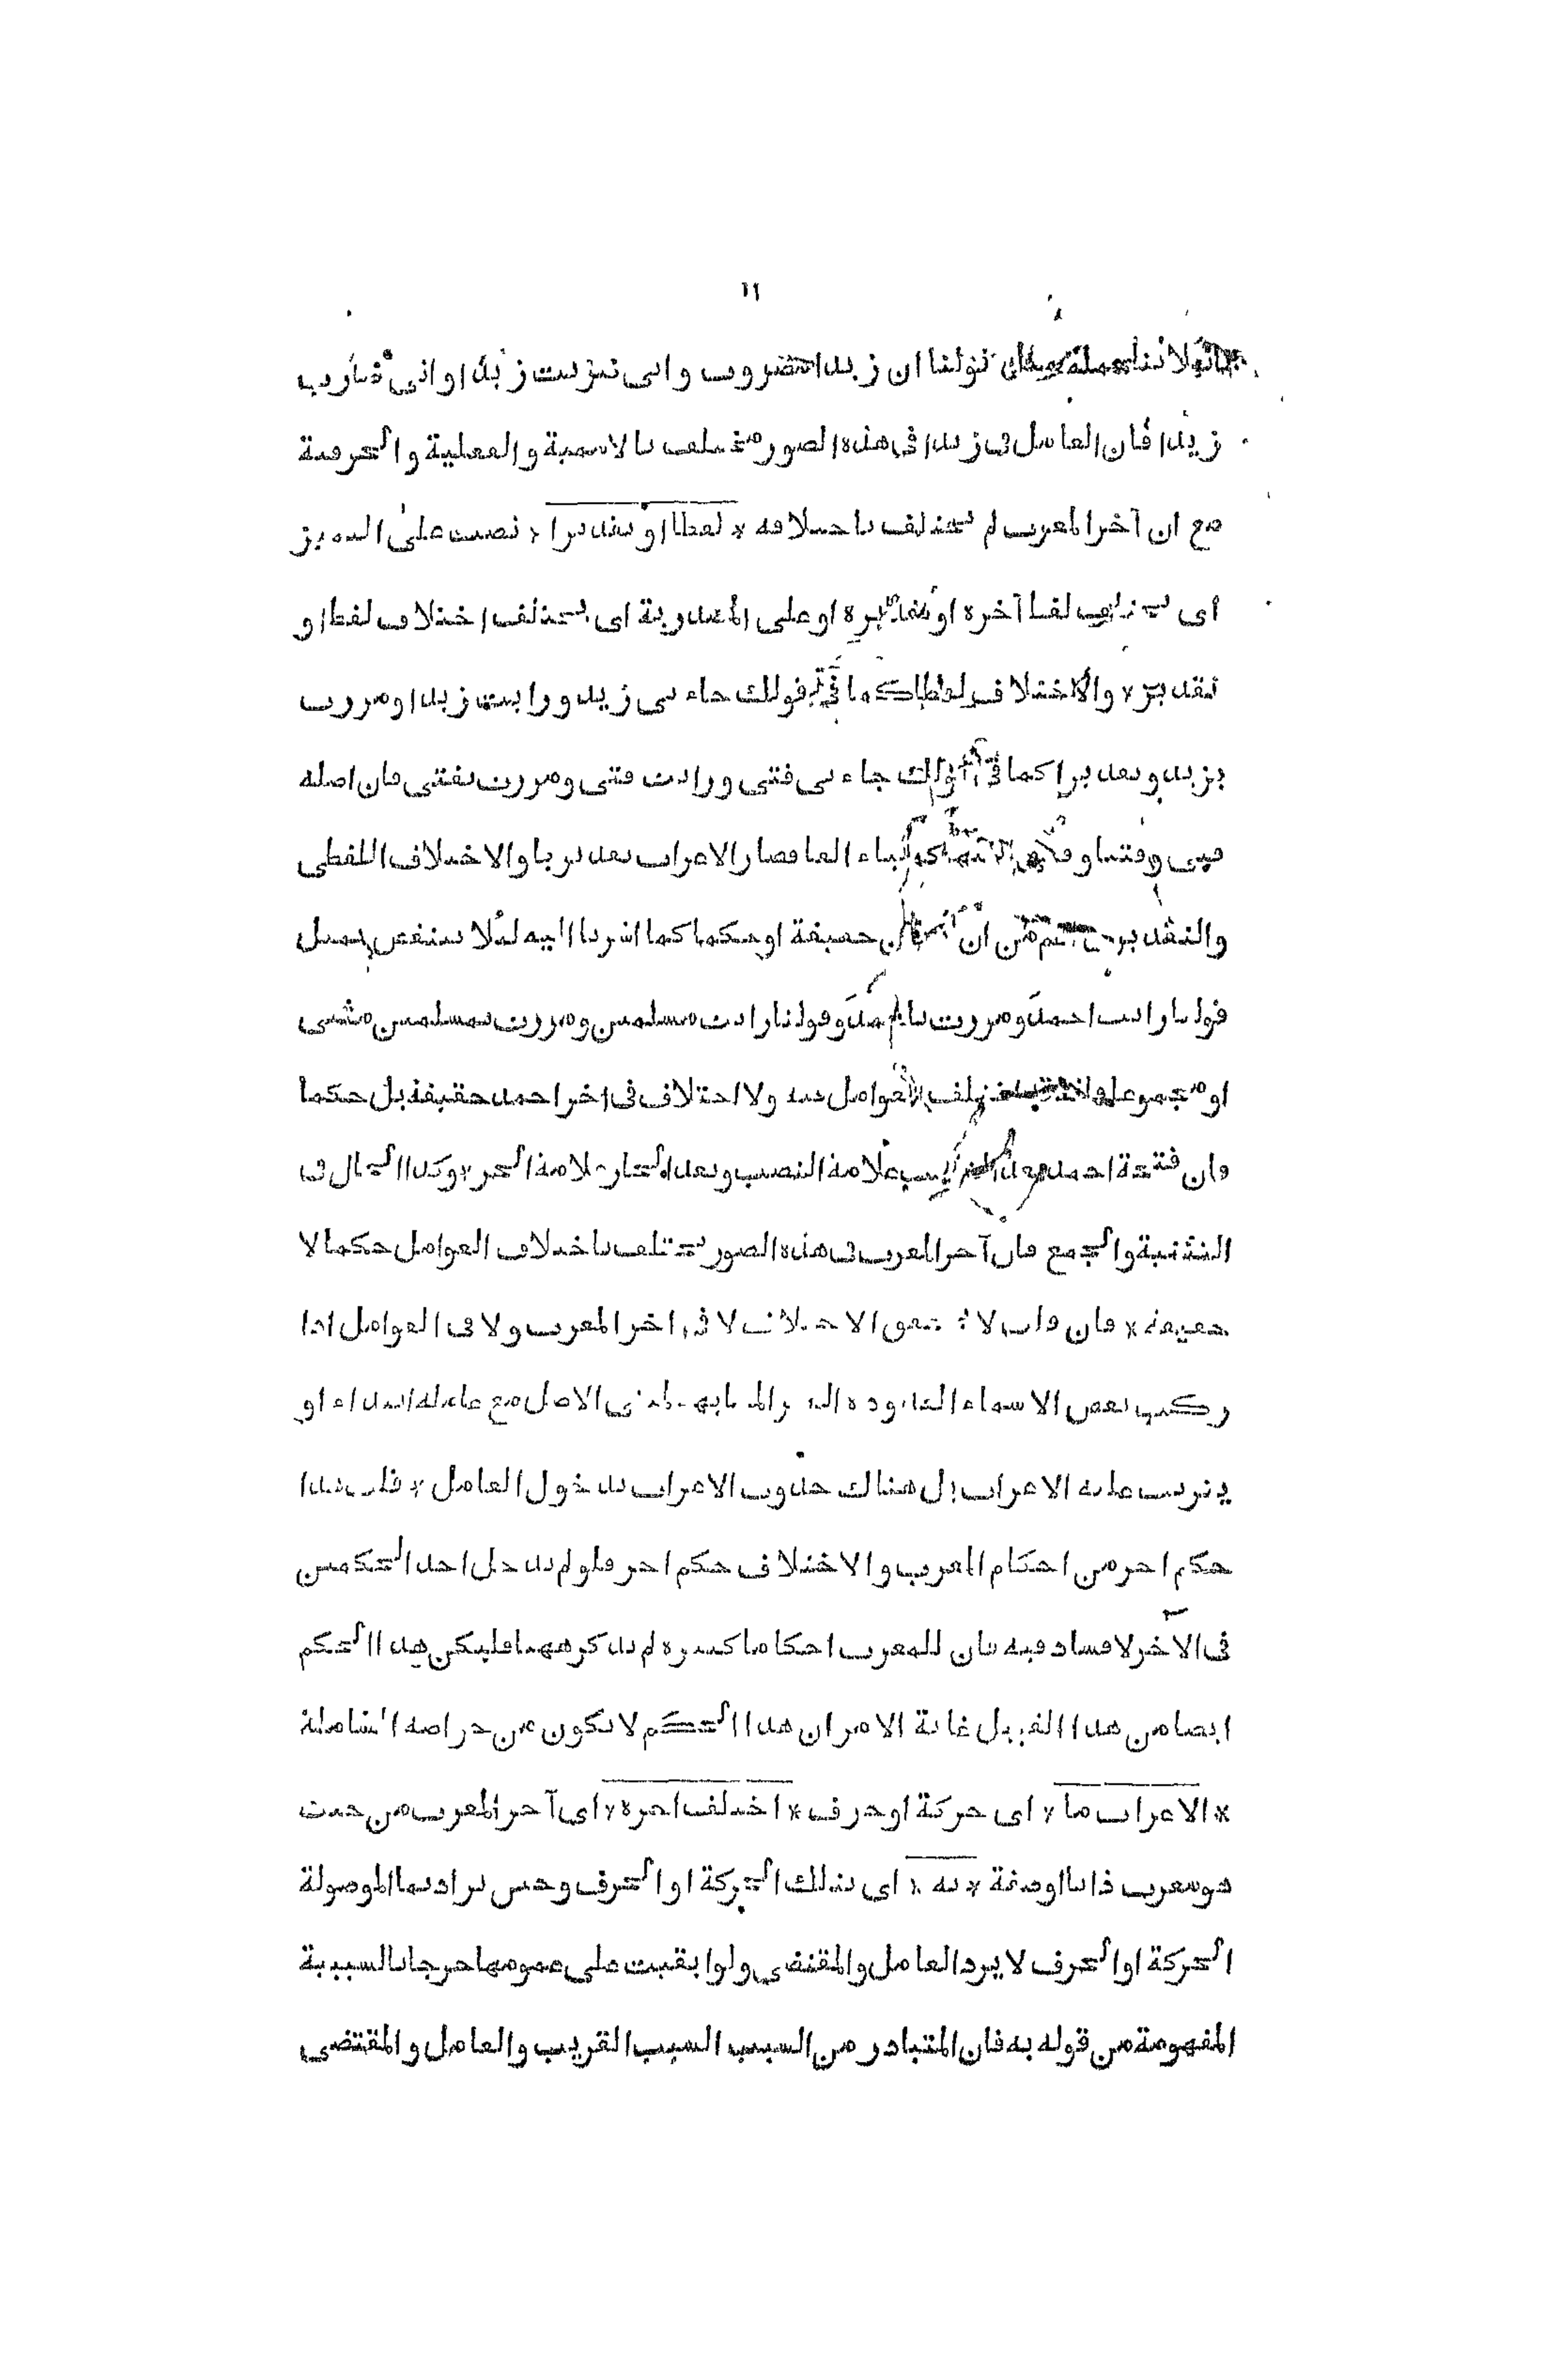 ١٦
لا ننا قولنا ان زيدا مضروب واني ضربت زيدا او اني ضارب
زيدا فان العامل في زيدا في هذه الصور مختلف بالاسمية والفعلية والحرفية
مع ان آخر المعرب لم يختلف باختلافه * لفظا او تقديرا * نصب على التمييز
اى يختلف لفظ آخره او تقديره او على المصدرية اى يختلف اختلاف لفظ او
تقدير * والاختلاف لفظا كما في قولك جاءنى زيد ورايت زيدا ومررت
بزيد وتقديرا كما في قولك جاءنى فتى ورايت فتى ومررت بفتى فان اصله
فتى وفتيا و الياء الفا فصار الاعراب تقديريا والاختلاف اللفظى
والتقديرى من ان حقيقة او حكما كما اشرنا اليه لئلا ينتقض بمثل
قولنا رايت احمد ومررت باحمد وقولنا رايت مسلمين ومررت بمسلمين مثنى
او مجموعا العوامل فيه ولا اختلاف في اخر احمد حقيقة بل حكما
فان فتحة احمد بعد علامة النصب وبعد الجار علامة الجر * وكذا الحال في
التثنية والجمع فان آخر المعرب في هذه الصور يختلف باختلاف العوامل حكما لا
حقيقة * فان قلت لا يتحقق الاختلاف لا في اخر المعرب ولا في العوامل اذا
ركب بعض الاسماء المعدودة الغير المشابهة لمبنى الاصل مع عامله ابتداء او
يترتب عليه الاعراب بل هناك حدوث الاعراب بدخول العامل * قلت هذا
حكم اخر من احكام المعرب والاختلاف حكم اخر فلو لم يدخل احد الحكمين
في الآخر لا فساد فيه فان للمعرب احكاما كثيرة لم يذكر ههنا فليكن هذا الحكم
ايضا من هذا القبيل غاية الامر ان هذا الحكم لا يكون من خواصه الشاملة
* الاعراب ما * اى حركة او حرف * اختلف اخره * اى آخر المعرب من حيث
هو معرب ذاتا او صفة * به * اى بتلك الحركة او الحرف وحين يراد بما الموصولة
الحركة او الحرف لا يرد العامل والمقتضى ولو ابقيت على عمومها خرجا بالسببية
المفهومة من قوله به فان المتبادر من السبب السبب القريب والعامل والمقتضى